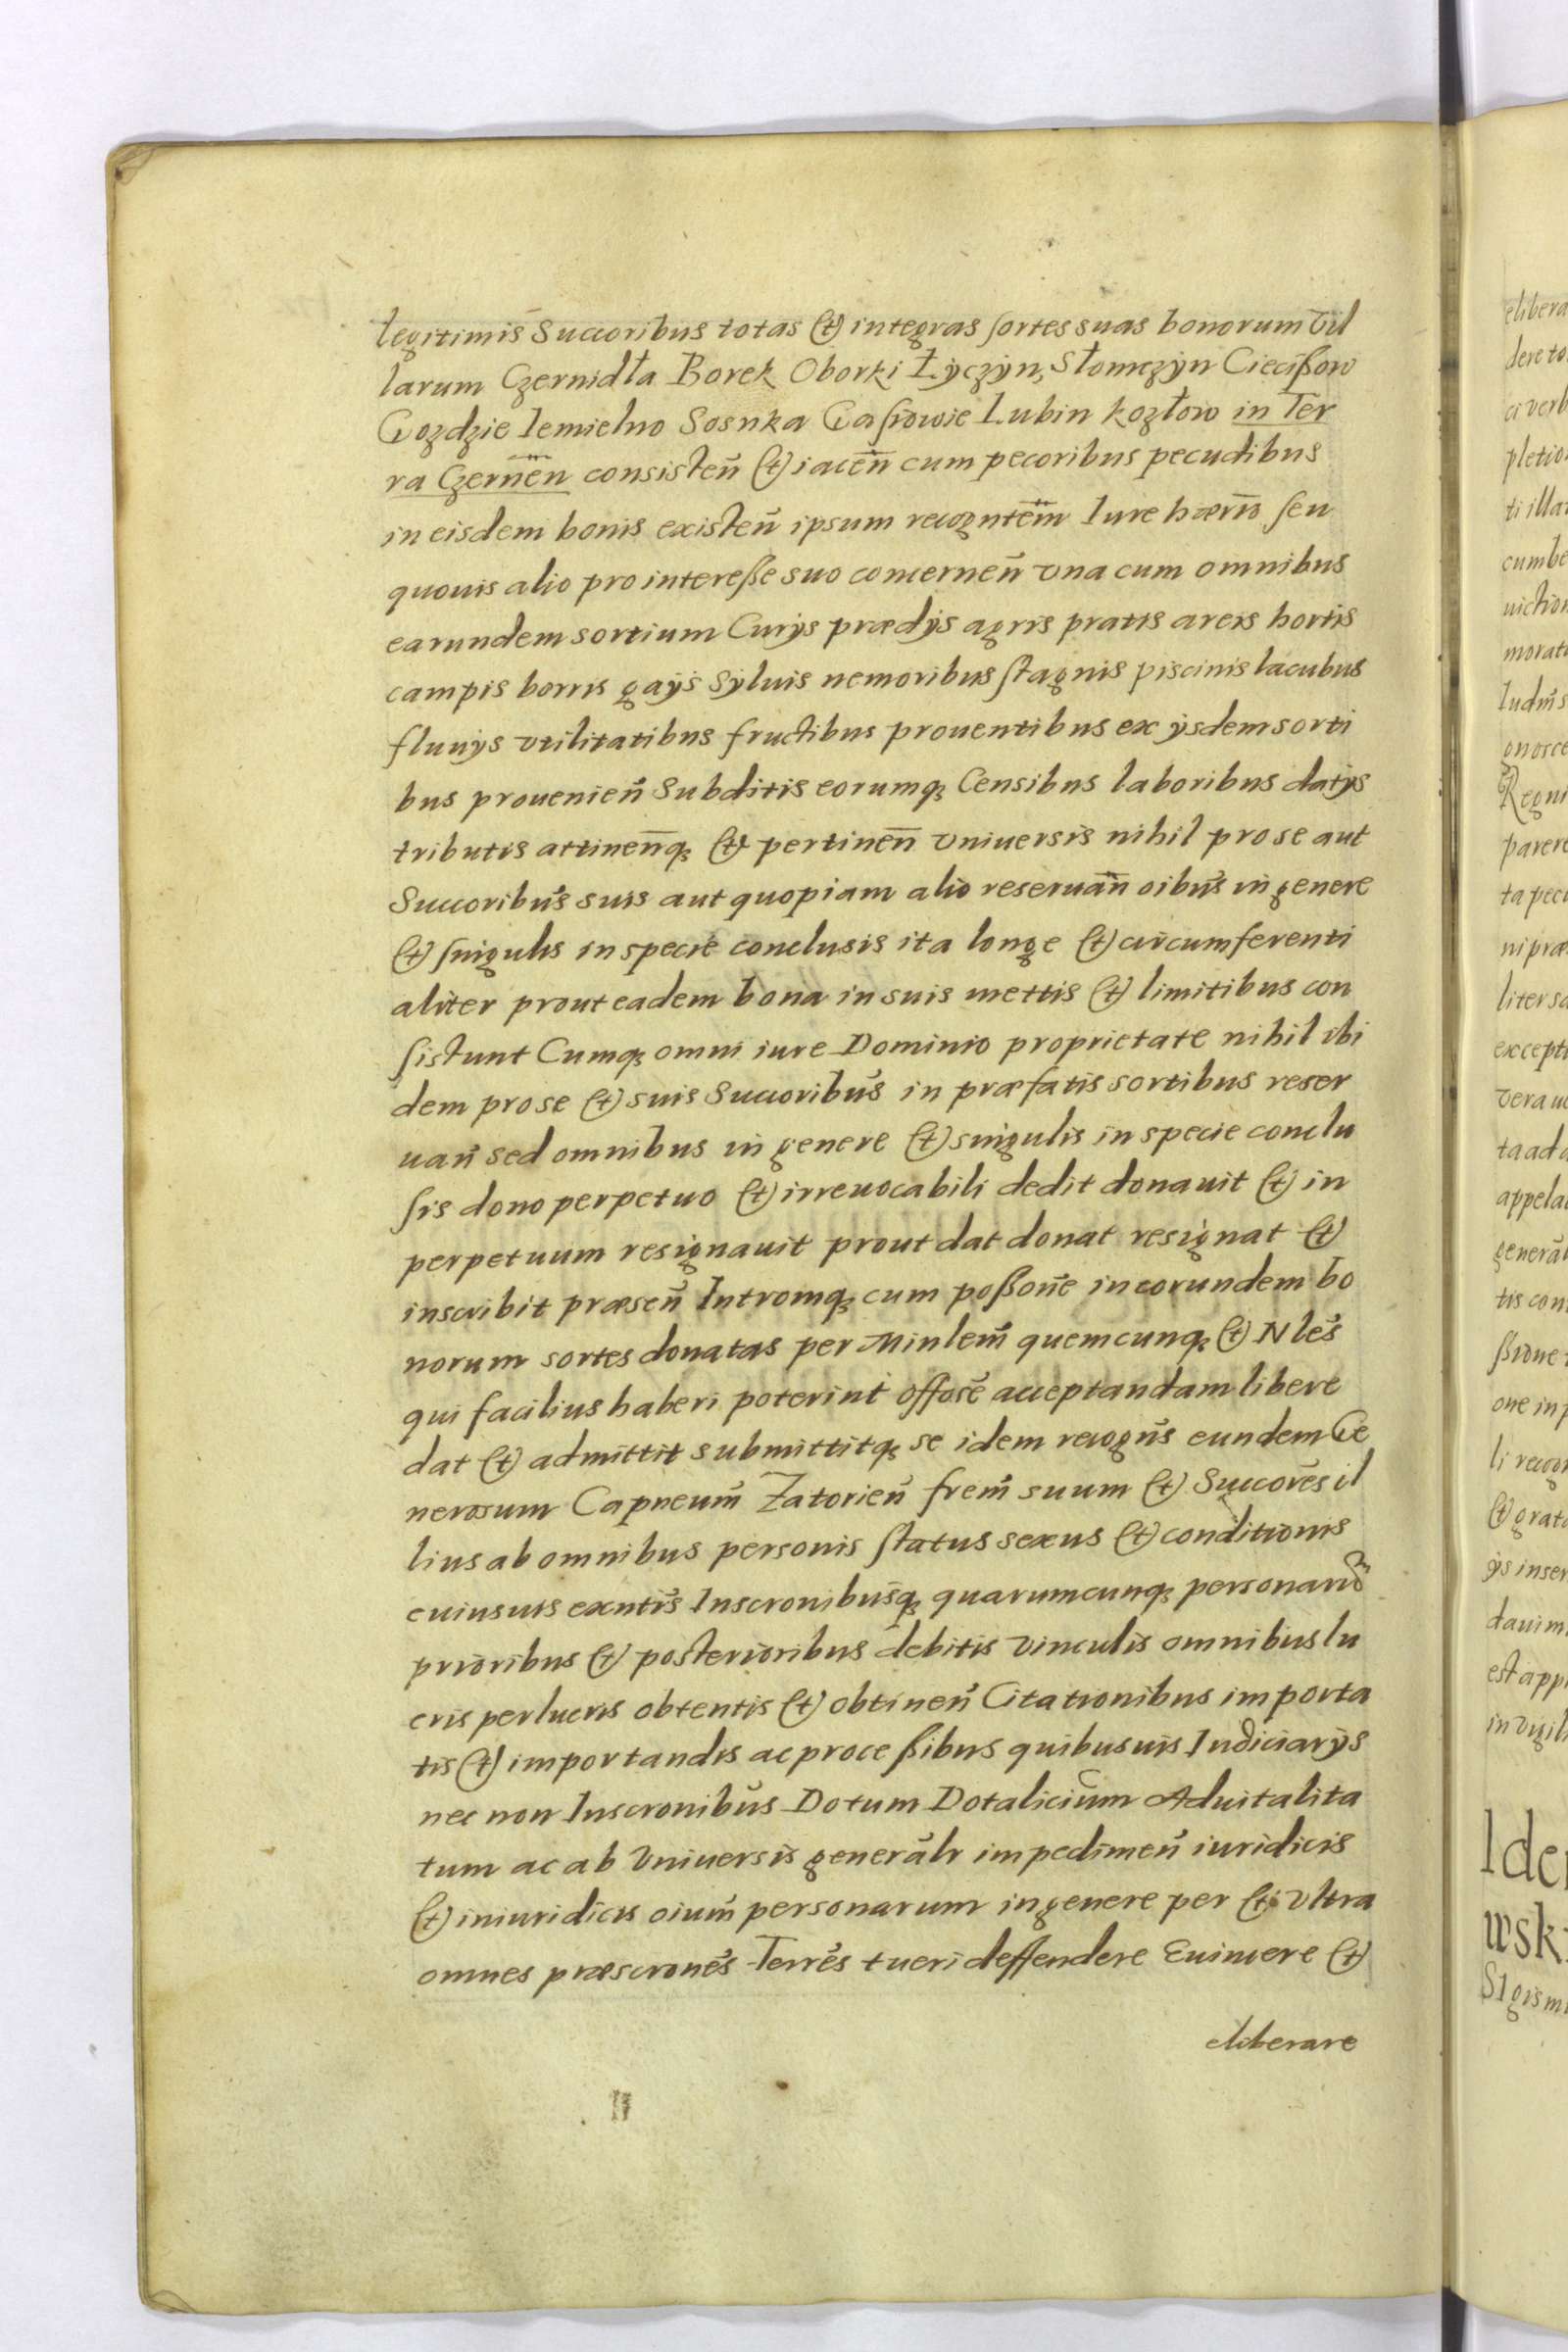 legitimis Succoribus totas et integras sortes suas bonorum Vil
larum Czernidła Borek Oborki Łyczyn, Słomczyn Ciecißow
Gozdzie Iemielno Sosnka Gaſsowie Lubin kozłow in Ter
ra Czerneñ consisteñ et iaceñ cum pecoribus pecudibus
in eisdem bonis existeñ ipsum recogntem̃ Iure hærño seu
quouis alio pro intereße suo concerneñ vna cum omnibus
earundem sortium Curijs prædijs agris pratis areis hortis
campis borris gajis Syluis nemoribus stagnis piscinis lacubus
fluuijs vtilitatibus fructibus prouentibus ex ijsdem sorti
bus prouenieñ Subditis eorumq; Censibus laboribus datijs
tributis attineñq; et pertineñ vniuersis nihil pro se aut
Succoribus suis aut quopiam alio reseruañ oibus in genere
et singulis in specie conclusis ita longe et circumferenti
aliter prout eadem bona in suis mettis et limitibus con
sistunt Cumq; omni iure Dominio proprietate nihil ibi
dem pro se et suis Succoribus in præfatis sortibus reser
uañ sed omnibus in genere et singulis in specie conclu
sis dono perpetuo et irreuocabili dedit donauit et in
perpetuum resignauit prout dat donat resignat et
inscribit præseñ Intromq; cum poßone in eorundem bo
norum sortes donatas per Minlem̃ quemcunq; et Nles
qui facilius haberi poterint offose acceptandam libere
dat et admittit submittitq; se idem recogns eundem Ge
nerosum Capneum̃ Zatorieñ frem̃ suum et Succores il
lius ab omnibus personis status sexus et conditionis
cuiusuis exntis Inscronibusq; quarumcunq; personarũ
prioribus et posterioribus debitis vinculis omnibus lu
cris perlucris obtentis et obtineñ Citationibus importa
tis et importandis ac proceßibus quibusuis Iudiciarijs
nec non Inscronibus Dotum Dotalicium Aduitalita
tum ac ab Vniuersis generalr impedimeñ iuridicis
et iniuridicis oium̃ personarum in genere per et vltra
omnes præscrones Terres tueri deffendere Euincere et
eliberare